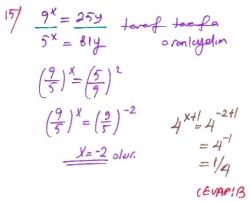 15/ 9^x = 25y taraf tarafa
5^x = 81y oranlayalım
(9/5)^x = (5/9)^2
(9/5)^x = (9/5)^-2
x = -2 olur.
4^x+1 = 4^-2+1
= 4^-1
= 1/4
CEVAP: B